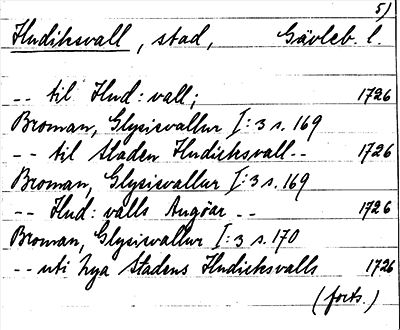 5)
Hudiksvall, stad, Gävleb. l.
-- til Hud: vall; 1726
Broman, Glysisvallur I:3 s. 169
-- til Staden Hudicksvall -- 1726
Broman, Glysisvallur I:3 s. 169
-- Hud: valls Angöar -- 1726
Broman, Glysisvallur I:3 s. 170
-- uti nya Stadens Hudicksvalls 1726
(forts.)